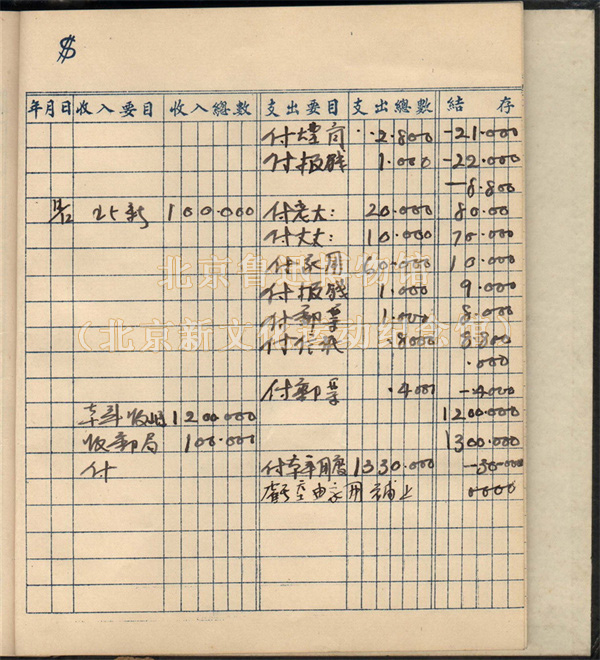 $
年月日 收入要目 收入總數 支出要目 支出總數 結存
付 2.800 -21.000
付报 1.000 -22.000
-8.800
12 100.000 付老大: 20.000 80.00
付丈丈: 10.000 70.000
付家用 60.000 10.000
付报錢 1.000 9.000
付郵票 1.000 8.000
付信 .8000 8.800
.000
付郵票 .400 -.4000
收 1200.000 1200.000
收郵局 100.000 1300.000
付 付 1330.000 -30.000
虧空由家用補上 0000
北京鲁迅博物馆
（北京新文化运动纪念馆）